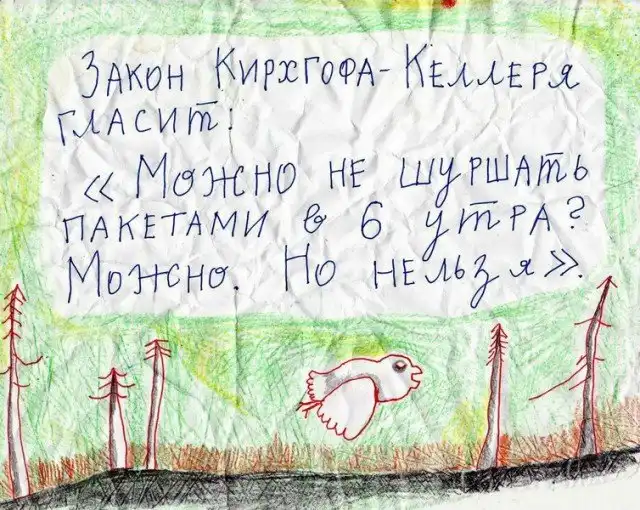 Закон Кирхгофа-Келлеря
гласит:
« Можно не шуршать
пакетами в 6 утра?
Можно. Но нельзя».